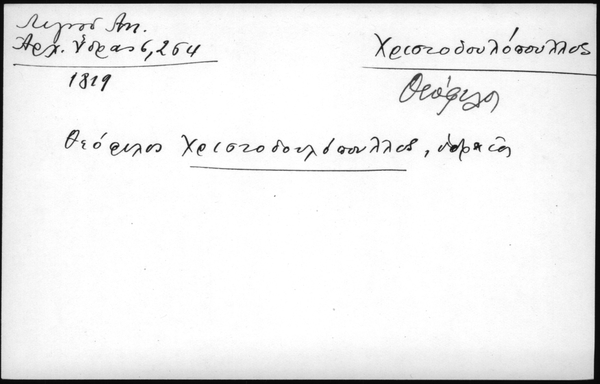 Λιγνού Αν.
Αρχ. Ύδρας 6, 254
1819
Χριστοδουλόπουλλος
Θεόφιλος
Θεόφιλος Χριστοδουλόπουλλος, υδραίος